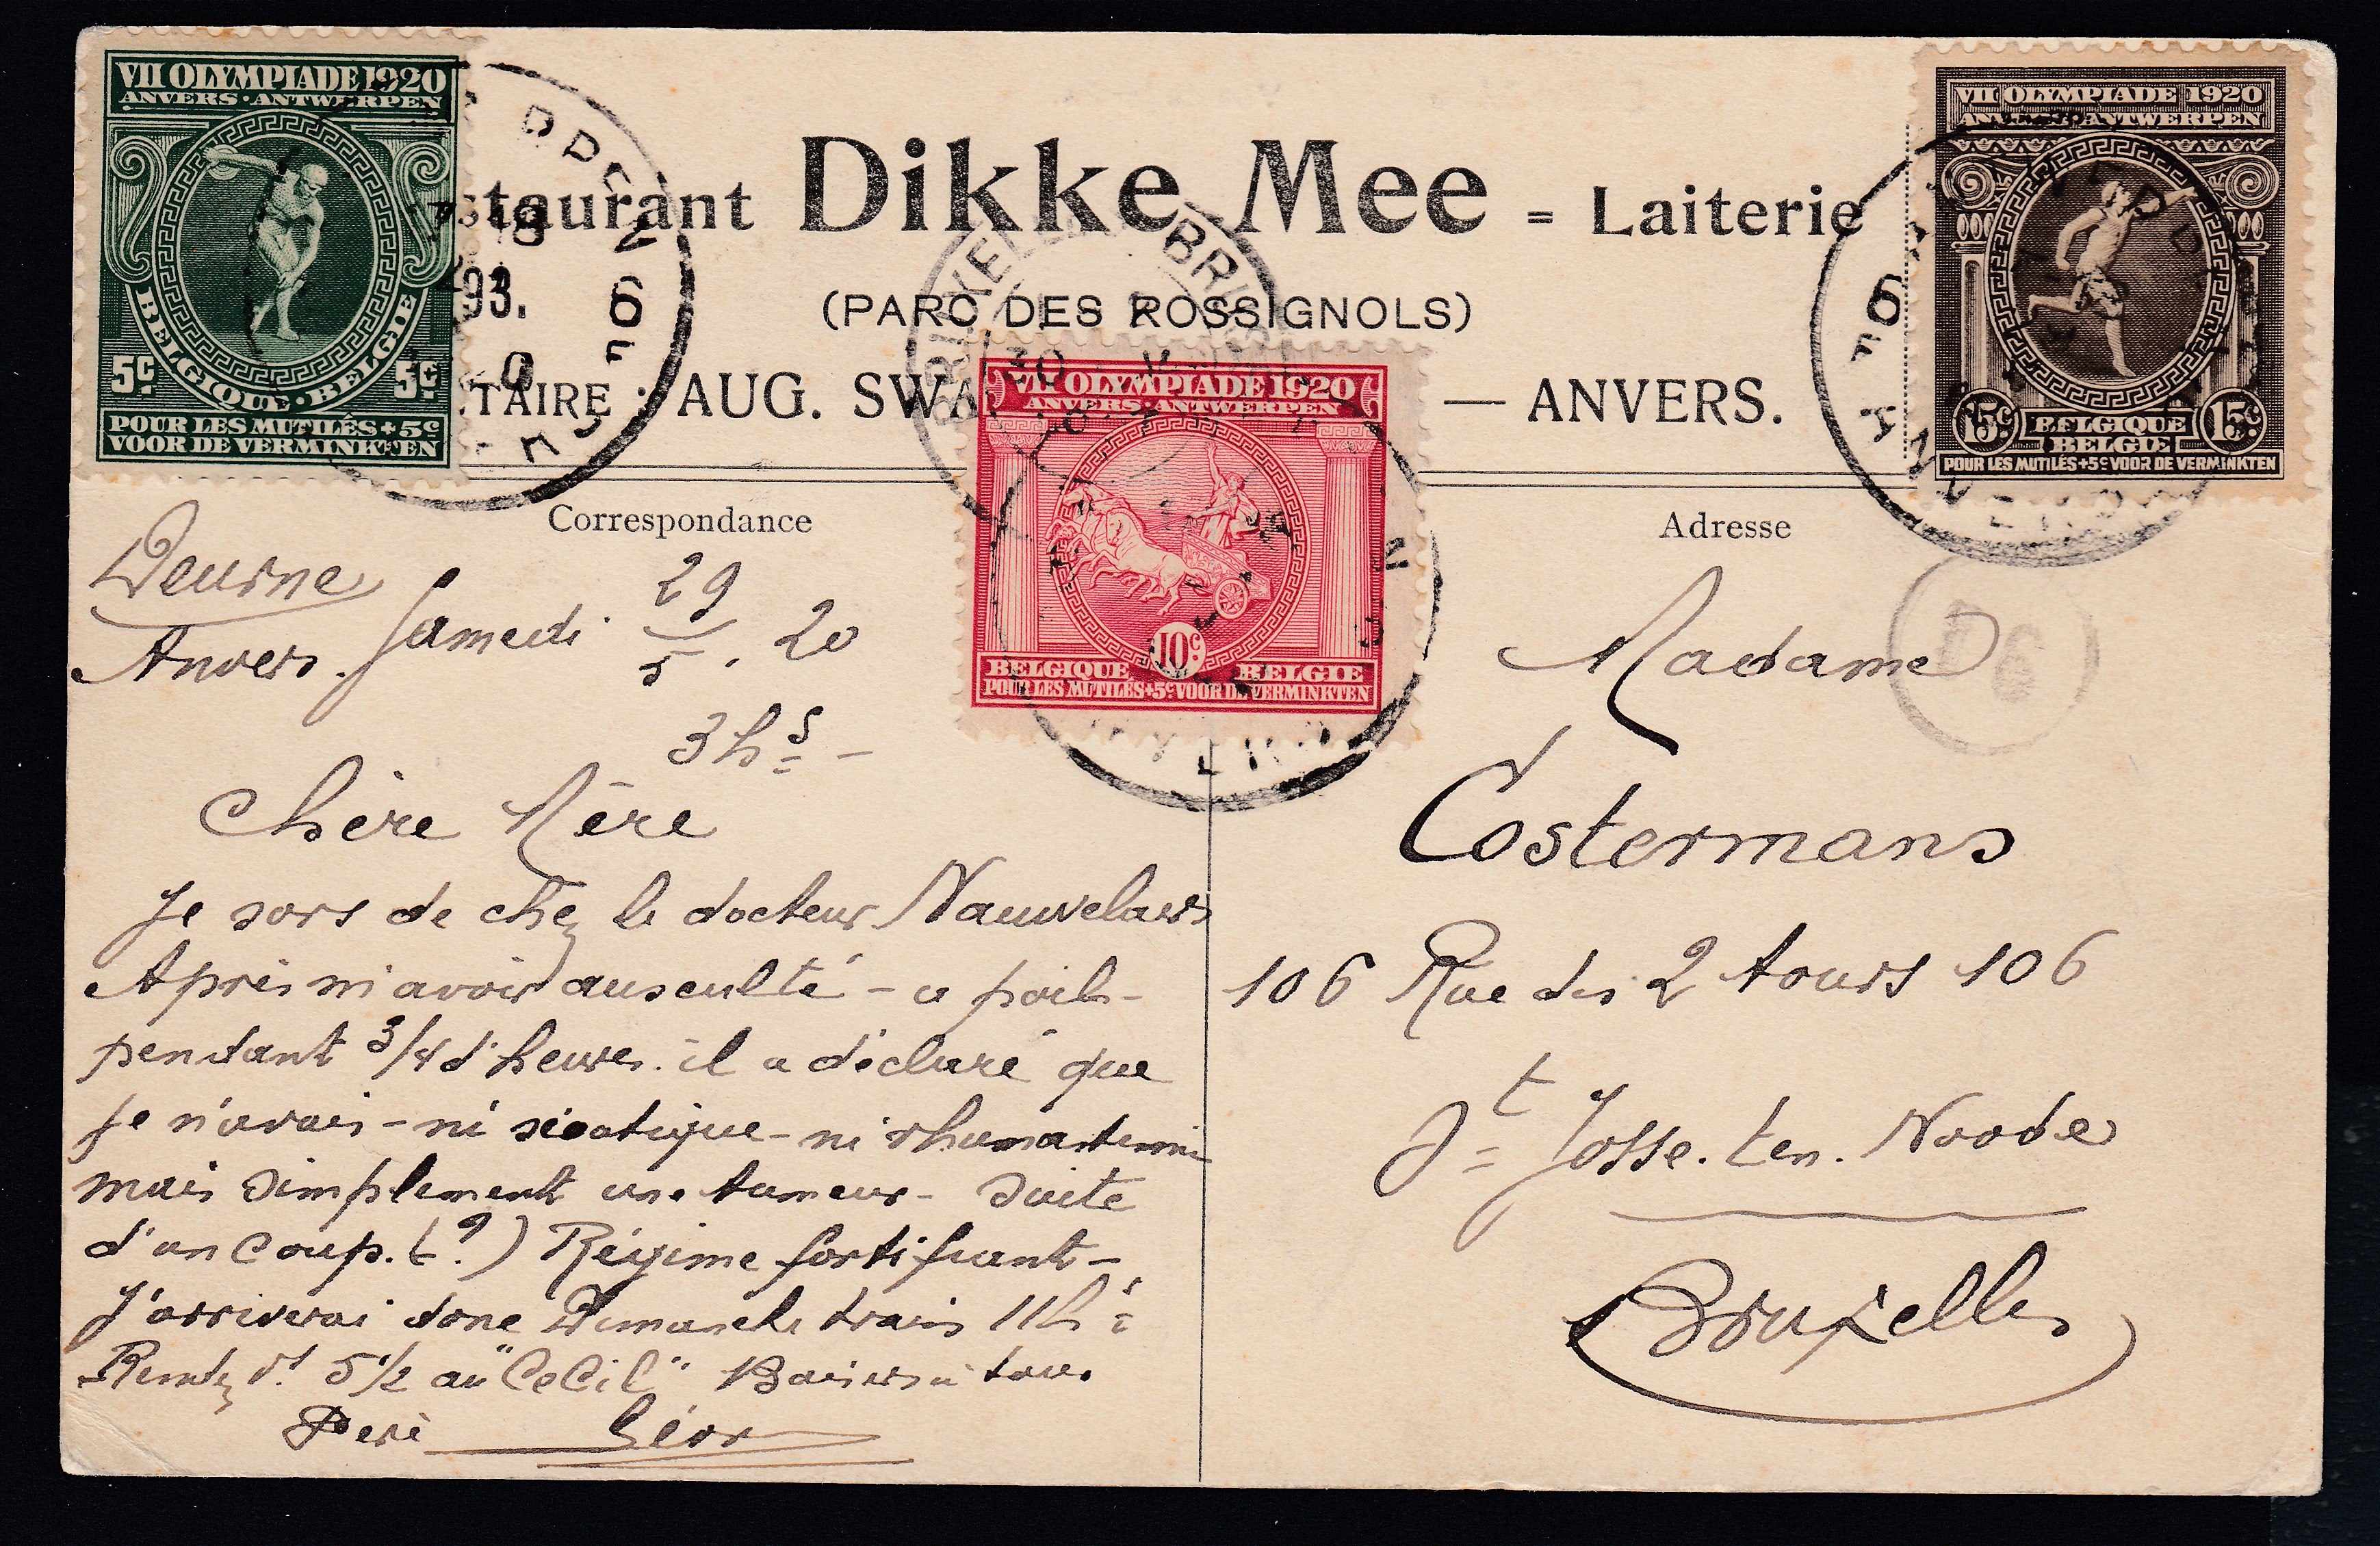 VII OLYMPIADE 1920
ANVERS · ANTWERPEN
BELGIQUE · BELGIE
5c 5c
POUR LES MUTILÉS + 5c
VOOR DE VERMINKTEN
VII OLYMPIADE 1920
ANVERS · ANTWERPEN
15c 15c
BELGIQUE
BELGIE
POUR LES MUTILÉS + 5c VOOR DE VERMINKTEN
staurant Dikke Mee = Laiterie
(PARC DES ROSSIGNOLS)
TAIRE : AUG. SWA — ANVERS.
VII OLYMPIADE 1920
ANVERS · ANTWERPEN
10c
BELGIQUE BELGIE
POUR LES MUTILÉS + 5c VOOR DE VERMINKTEN
BRUXELLES BRUSSEL
ANTWERPEN 6 ANVERS
Correspondance
Deurne
Anvers. Samedi 29/5. 20
3 hs -
Chère Mère
Je sors de chez le docteur Nauwelaers
Après m'avoir ausculté - a poils -
pendant 3/4 d'heures. il a déclaré que
je n'avais - ni sciatique - ni rhumatisme
mais simplement une tumeur - suite
d'un coup. (?) Régime fortifiant -
J'arriverai donc Dimanche train 11h
Rendez vt 5 1/2 au "Cecil" Baisers à tous
Léon
Adresse
Madame
Costermans
106 Rue des 2 tours 106
St Josse. ten. Noode
Bruxelles